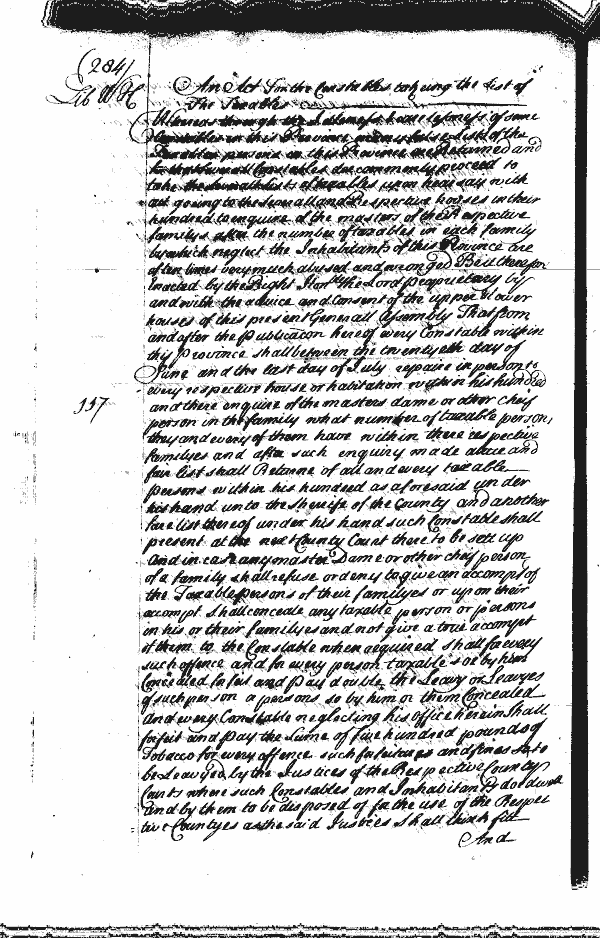 (284)
Lib W H
An Act For the Constables takeing the List of
The Taxables
Whereas through the Idleness & carelessness of some
Constables in this Province many false Lists of the
Taxable persons in this Province are Returned and
that several Constables doe commonly proceed to
take the severall Lists of taxables upon hearsay with
out going to the severall and Respective houses in their
hundred to enquire of the masters of the Respective
familys after the number of taxables in each family
by which neglect the Inhabitants of this Province are
often times very much abused and wronged Be it therefor
Enacted by the Right Honble the Lord proprietary by
and with the advice and Consent of the upper & lower
houses of this present Generall Assembly That from
and after the Publicacon hereof every Constable within
this Province shall between the twentyeth day of
June and the last day of July repaire in person to
every respective house or habitation within his hundred
157
and there enquire of the masters dame or other cheif
person in the family what number of taxable persons
they and every of them have within there respective
familyes and after such enquiry made a true and
fair list shall Returne of all and every taxable
persons within his hundred as aforesaid under
his hand unto the Sherife of the County and another
like list thereof under his hand such Constable shall
present at the next County Court there to be sett up
And in case any master Dame or other cheif person
of a family shall refuse or deny to give an accompt of
the Taxable persons of their familyes or upon their
accompt shall conceale any taxable person or persons
in his or their familyes and not give a true accompt
of them to the Constable when required shall for every
such offence and for every person taxable soe by him
Concealed forfeit and Pay double the Leavy or Leavyes
of such person or persons so by him or them Concealed
And every Constable neglecting his office herein Shall
forfeit and pay the Sume of five hundred pounds of
Tobacco for every offence such forfeitures and fines to
be Leavyed by the Justices of the Respective County
Courts where such Constables and Inhabitants do dwell
and by them to be disposed of for the use of the Respec
tive Countyes as the said Justices shall think fitt
And